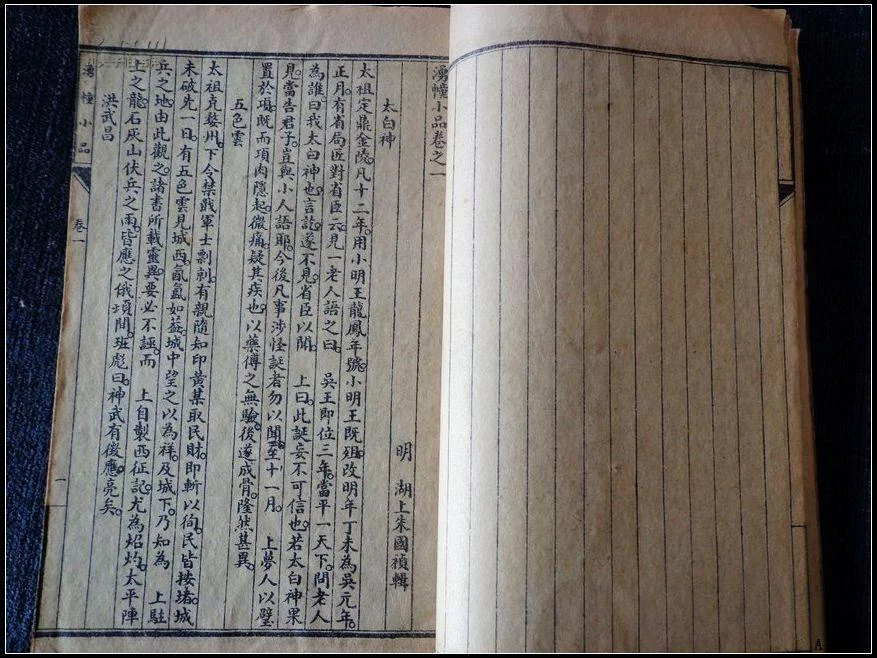 湧幢小品卷之一
明 湖上朱國禎輯
太白神
太祖定鼎金陵。凡十二年。用小明王龍鳳年號。小明王既殂。改明年丁未為吳元年。
正月。有省局匠對省臣云。見一老人語之曰。 吳王即位三年。當平一天下。問老人
為誰。曰我太白神也。言訖。遂不見。省臣以聞。 上曰。此誕妄不可信也。若太白神果
見。當告君子。豈與小人語耶。今後凡事涉怪誕者勿以聞。至十一月。 上夢人以璧
置於項。既而項肉隱起。微痛。疑其疾也。以藥傅之無驗。後遂成骨。隆然甚異。
五色雲
太祖克婺州。下令禁戢軍士剽剠。有親隨知印黃某取民財。即斬以徇。民皆按堵。城
未破先一日。有五色雲見城西。氤氳如蓋。城中望之以為祥。及城下。乃知為 上駐
兵之地。由此觀之。諸書所載靈異。要必不誣。而 上自製西征記。尤為炤灼。太平陣
上之龍。石灰山伏兵之雨。皆應之俄頃間。班彪曰。神武有徵應。亮矣。
洪武昌
湧幢小品 卷一 一